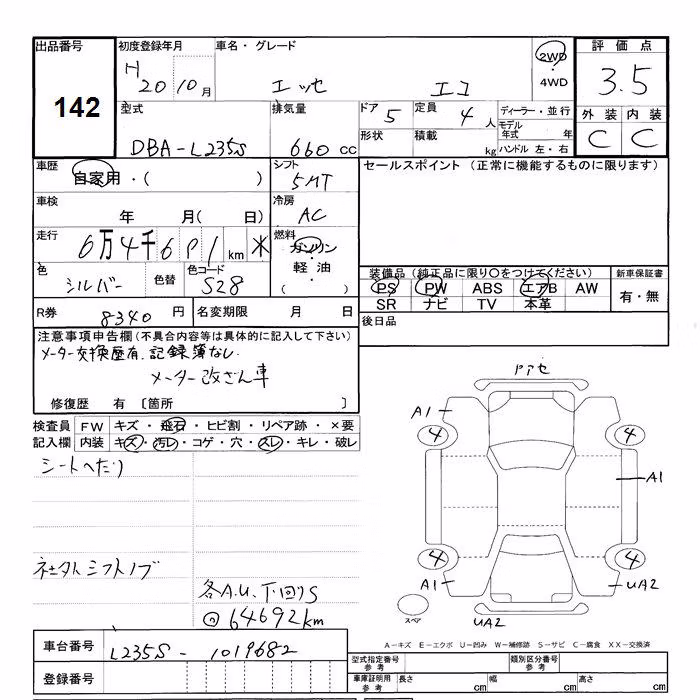 出品番号
142
初度登録年月
H 20 10 月
車名・グレード
エッセ エコ
2WD
・
4WD
評価点
3.5
外装 内装
C C
型式
DBA-L235S
排気量
660 cc
ドア 5
定員 4 人
ディーラー・並行
モデル年式 年
ハンドル 左・右
形状
積載 kg
車歴
自家用・( )
シフト
5MT
セールスポイント (正常に機能するものに限ります)
車検
年 月( 日)
冷房
AC
走行
6万4千6 1 km *
燃料
ガソリン
軽油
( )
色
シルバー
色替
色コード
S28
装備品(純正品に限り○をつけてください)
PS PW ABS エアB AW
SR ナビ TV 本革
新車保証書
有・無
R券 8340 円
名変期限 月 日
後日品
注意事項申告欄(不具合内容等は具体的に記入して下さい)
メーター交換歴有、記録簿なし
メーター改ざん車
修復歴 有 [箇所 ]
検査員記入欄
FW キズ・飛石・ヒビ割・リペア跡・×要
内装 キズ・汚レ・コゲ・穴・スレ・キレ・破レ
シートへたり
社外シフトノブ
各A.U、下回りS
@64692km
ドアセ
A1
4 4
A1
4 4
A1 UA2
UA2
スペア
A-キズ E-エクボ U-凹み W-補修跡 S-サビ C-腐食 XX-交換済
車台番号
L235S-1019682
登録番号
型式指定番号
参考
類別区分番号
参考
車庫証明用
参考
長さ cm 幅 cm 高さ cm